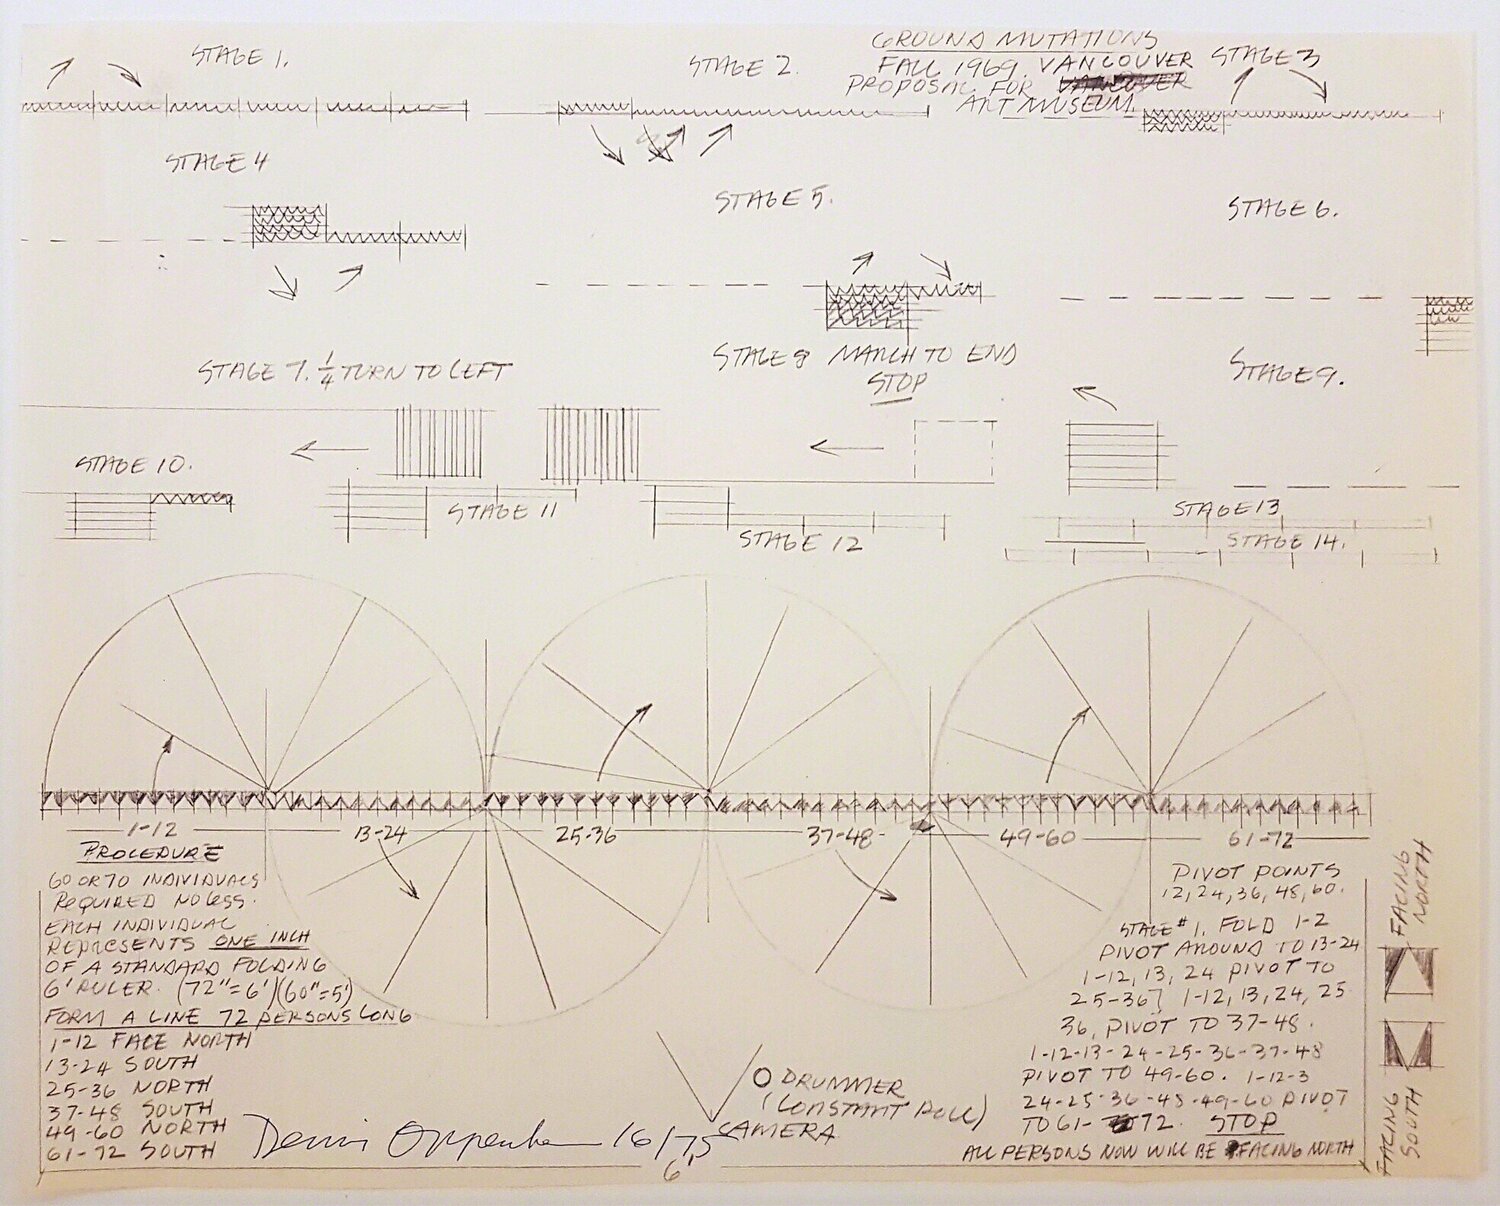 STAGE 1.
STAGE 2.
GROUND MUTATIONS
FALL 1969. VANCOUVER
PROPOSAL FOR VANCOUVER
ART MUSEUM.
STAGE 3
STAGE 4
STAGE 5.
STAGE 6.
STAGE 7. 1/4 TURN TO LEFT
STAGE 8 MARCH TO END
STOP
STAGE 9.
STAGE 10.
STAGE 11
STAGE 12
STAGE 13
STAGE 14.
1-12
13-24
25-36
37-48
49-60
61-72
PROCEDURE
60 OR 70 INDIVIDUALS
REQUIRED NO LESS.
EACH INDIVIDUAL
REPRESENTS ONE INCH
OF A STANDARD FOLDING
6' RULER. (72"=6')(60"=5')
FORM A LINE 72 PERSONS LONG
1-12 FACE NORTH
13-24 SOUTH
25-36 NORTH
37-48 SOUTH
49-60 NORTH
61-72 SOUTH
Dennis Oppenheim 16/75
6'
DRUMMER
(CONSTANT ROLL)
CAMERA
PIVOT POINTS
12, 24, 36, 48, 60.
STAGE #1. FOLD 1-2
PIVOT AROUND TO 13-24
1-12, 13, 24 PIVOT TO
25-36} 1-12, 13, 24, 25
36, PIVOT TO 37-48.
1-12-13-24-25-36-37-48
PIVOT TO 49-60. 1-12-3
24-25-36-48-49-60 PIVOT
TO 61-72. STOP
ALL PERSONS NOW WILL BE FACING NORTH
FACING
NORTH
FACING
SOUTH